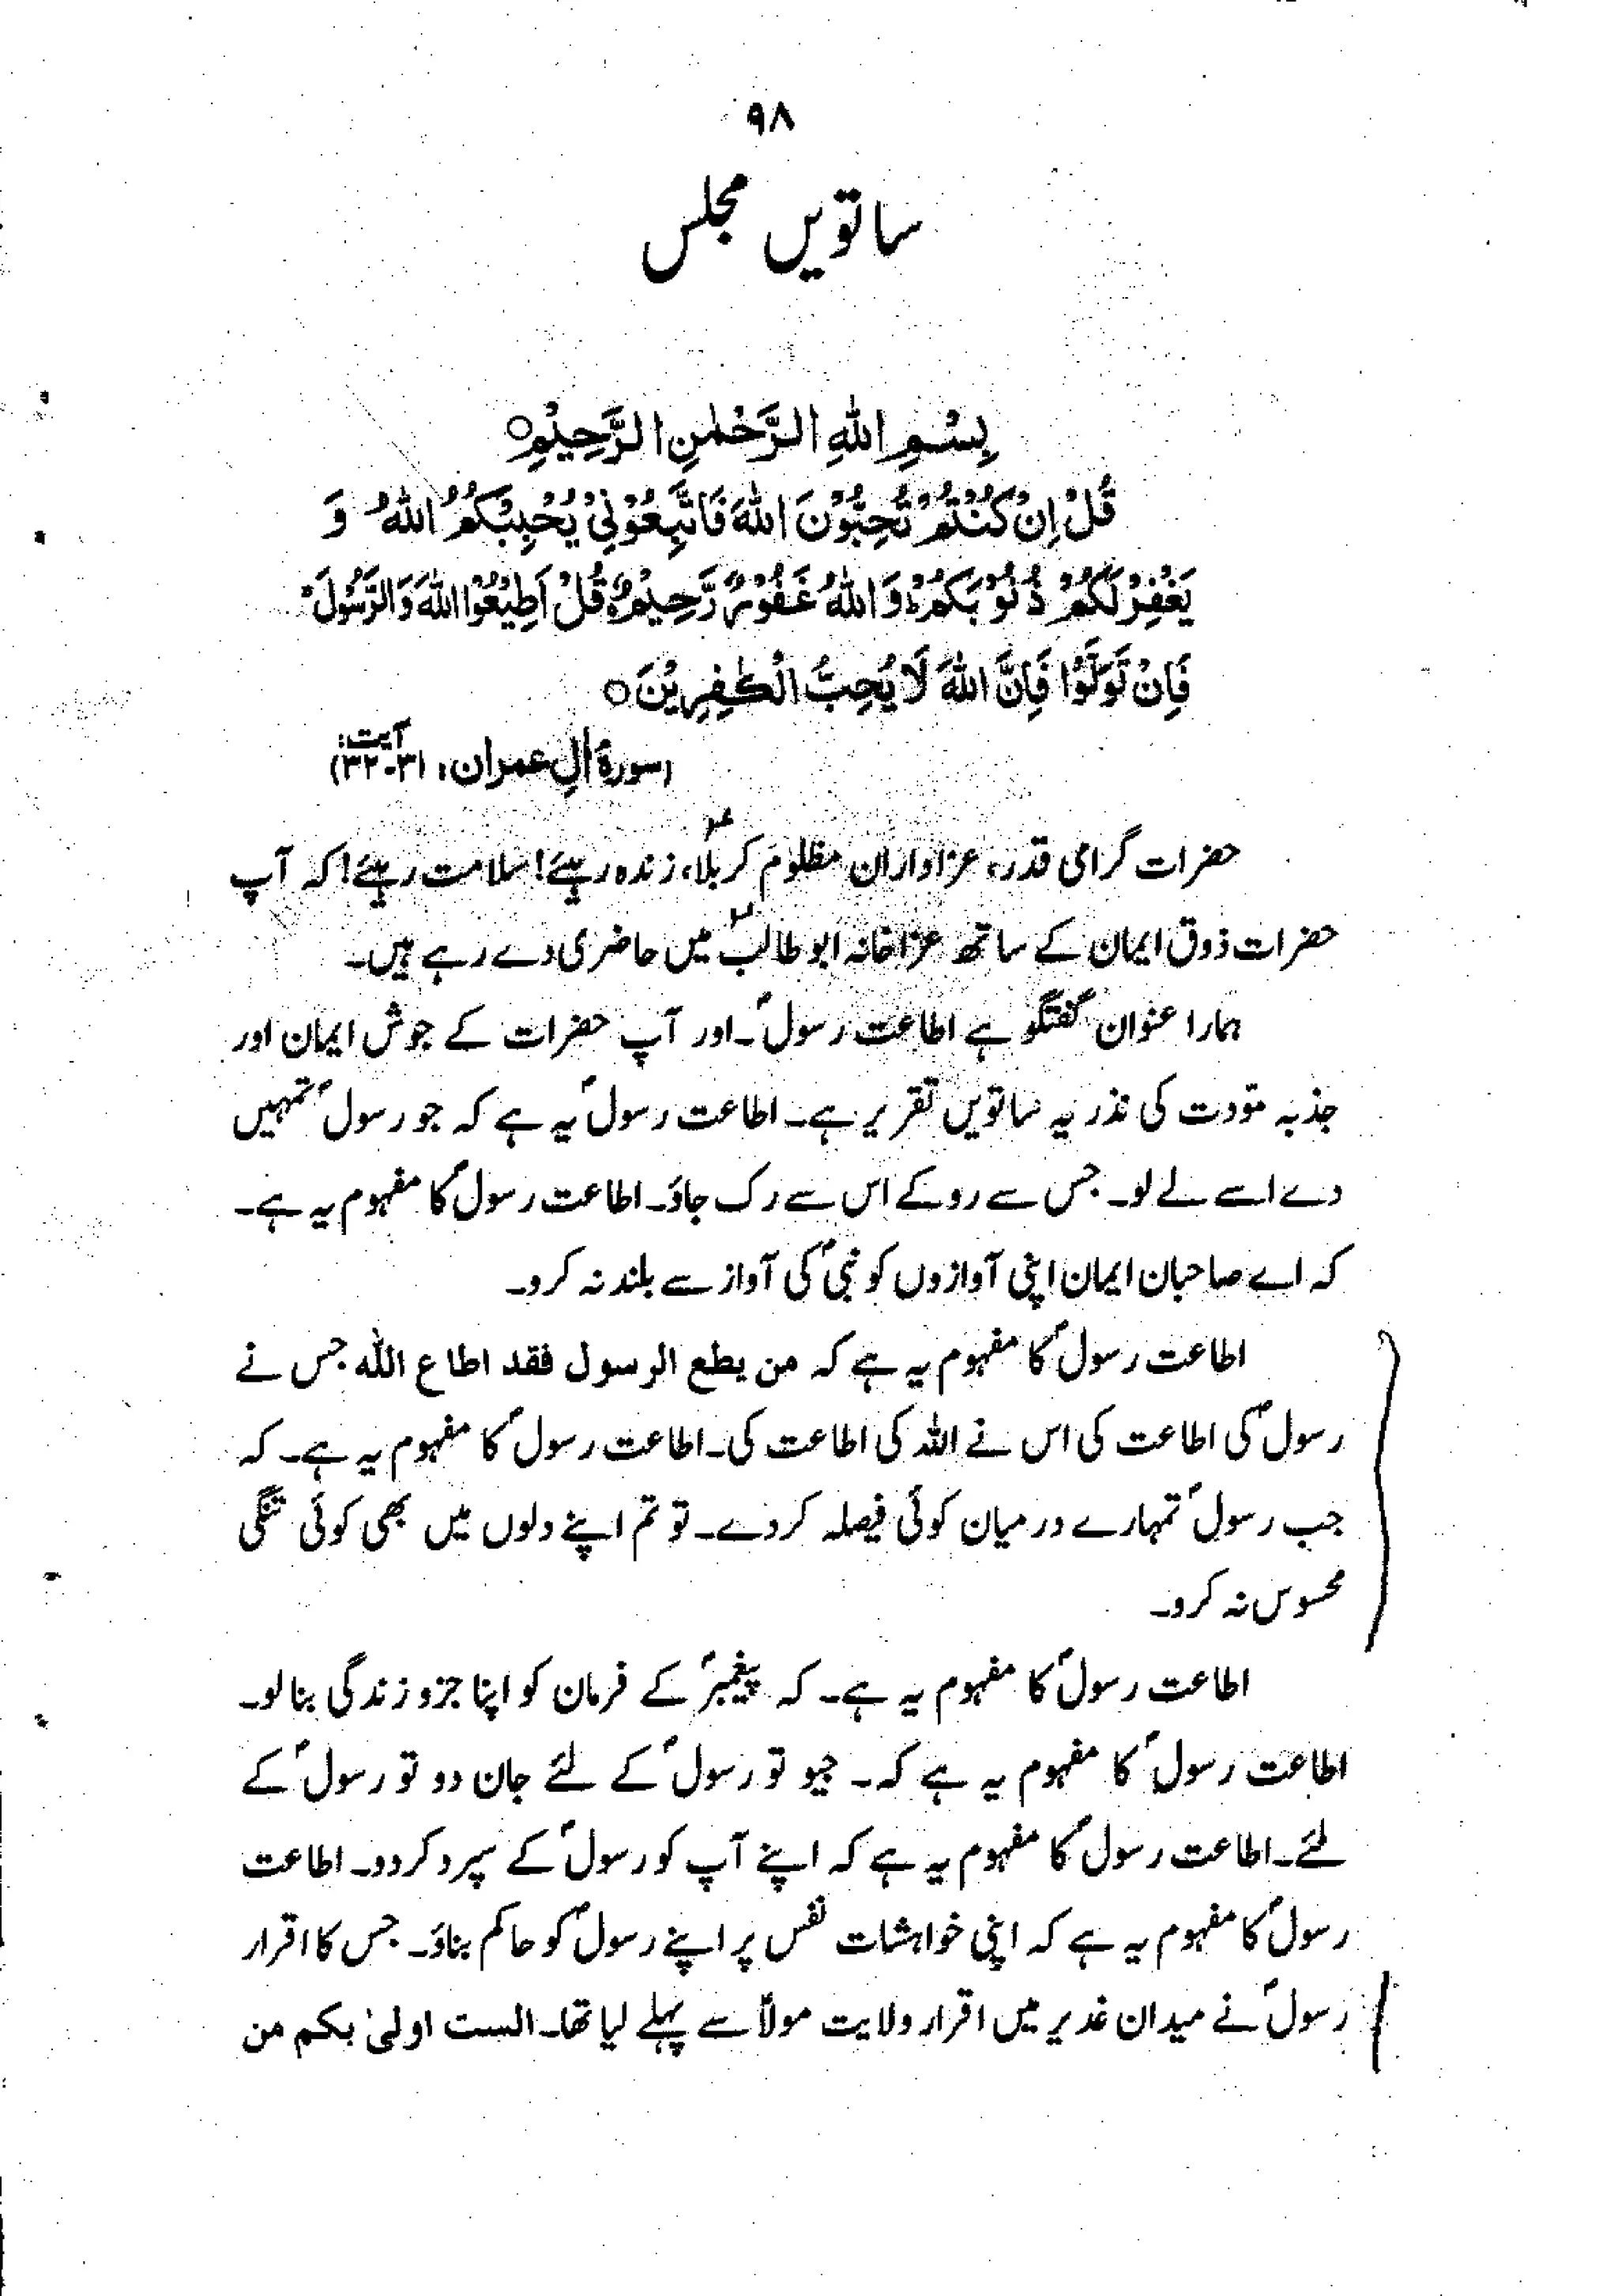 ۹۸
ساتویں مجلس
بِسْمِ اللّٰهِ الرَّحْمٰنِ الرَّحِيْمِ○
قُلْ اِنْ كُنْتُمْ تُحِبُّوْنَ اللّٰهَ فَاتَّبِعُوْنِيْ يُحْبِبْكُمُ اللّٰهُ وَ
يَغْفِرْ لَكُمْ ذُنُوْبَكُمْ ؕ وَ اللّٰهُ غَفُوْرٌ رَّحِيْمٌ○ قُلْ اَطِيْعُوا اللّٰهَ وَ الرَّسُوْلَ ۚ
فَاِنْ تَوَلَّوْا فَاِنَّ اللّٰهَ لَا يُحِبُّ الْكٰفِرِيْنَ○
(سورۂ اٰلِ عمران: آیت: ۳۱-۳۲)
حضرات گرامی قدر، عزاداران مظلوم کربلاؑ، زندہ رہیئے! سلامت رہیئے! کہ آپ
حضرات ذوق ایمان کے ساتھ عزاخانہ ابو طالبؑ میں حاضری دے رہے ہیں۔
ہمارا عنوان گفتگو ہے اطاعت رسولؐ۔ اور آپ حضرات کے جوش ایمان اور
جذبہ مودّت کی نذر یہ ساتویں تقریر ہے۔ اطاعت رسولؐ یہ ہے کہ جو رسولؐ تمہیں
دے اسے لے لو۔ جس سے روکے اس سے رک جاؤ۔ اطاعت رسولؐ کا مفہوم یہ ہے۔
کہ اے صاحبان ایمان اپنی آوازوں کو نبیؐ کی آواز سے بلند نہ کرو۔
اطاعت رسولؐ کا مفہوم یہ ہے کہ من یطع الرسول فقد اطاع اللہ جس نے
رسولؐ کی اطاعت کی اس نے اللہ کی اطاعت کی۔ اطاعت رسولؐ کا مفہوم یہ ہے۔ کہ
جب رسولؐ تمہارے درمیان کوئی فیصلہ کردے۔ تو تم اپنے دلوں میں بھی کوئی تنگی
محسوس نہ کرو۔
اطاعت رسولؐ کا مفہوم یہ ہے۔ کہ پیغمبرؐ کے فرمان کو اپنا جزو زندگی بنا لو۔
اطاعت رسولؐ کا مفہوم یہ ہے کہ۔ جیو تو رسولؐ کے لئے جان دو تو رسولؐ کے
لئے۔ اطاعت رسولؐ کا مفہوم یہ ہے کہ اپنے آپ کو رسولؐ کے سپرد کردو۔ اطاعت
رسولؐ کا مفہوم یہ ہے کہ اپنی خواہشات نفس پر اپنے رسولؐ کو حاکم بناؤ۔ جس کا اقرار
رسولؐ نے میدان غدیر میں اقرار ولایت مولاؑ سے پہلے لیا تھا۔ الست اولیٰ بکم من